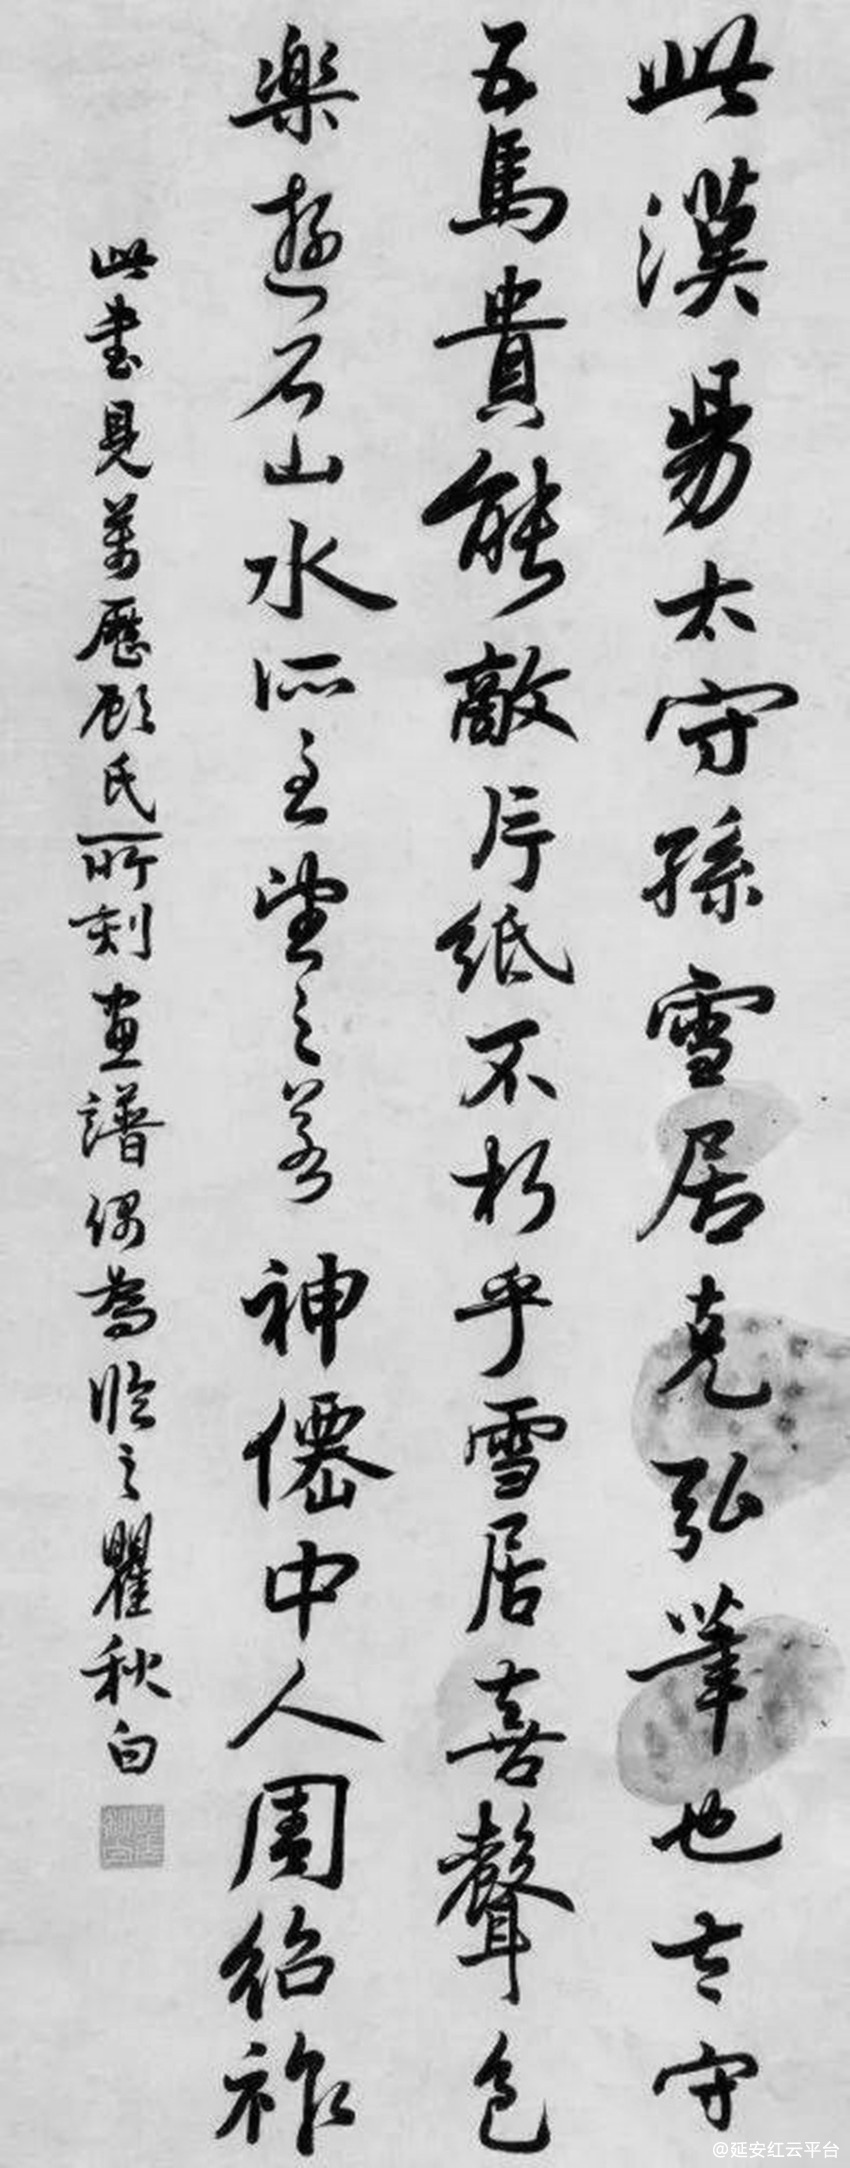 此漢易太守孫雪居克弘筆也太守
五馬貴能敵片紙不朽乎雪居喜聲色
樂遊石山水所至望之若神僊中人周紹祚
此書見萬歷顧氏所刻畫譜偶為臨之瞿秋白
@延安红云平台